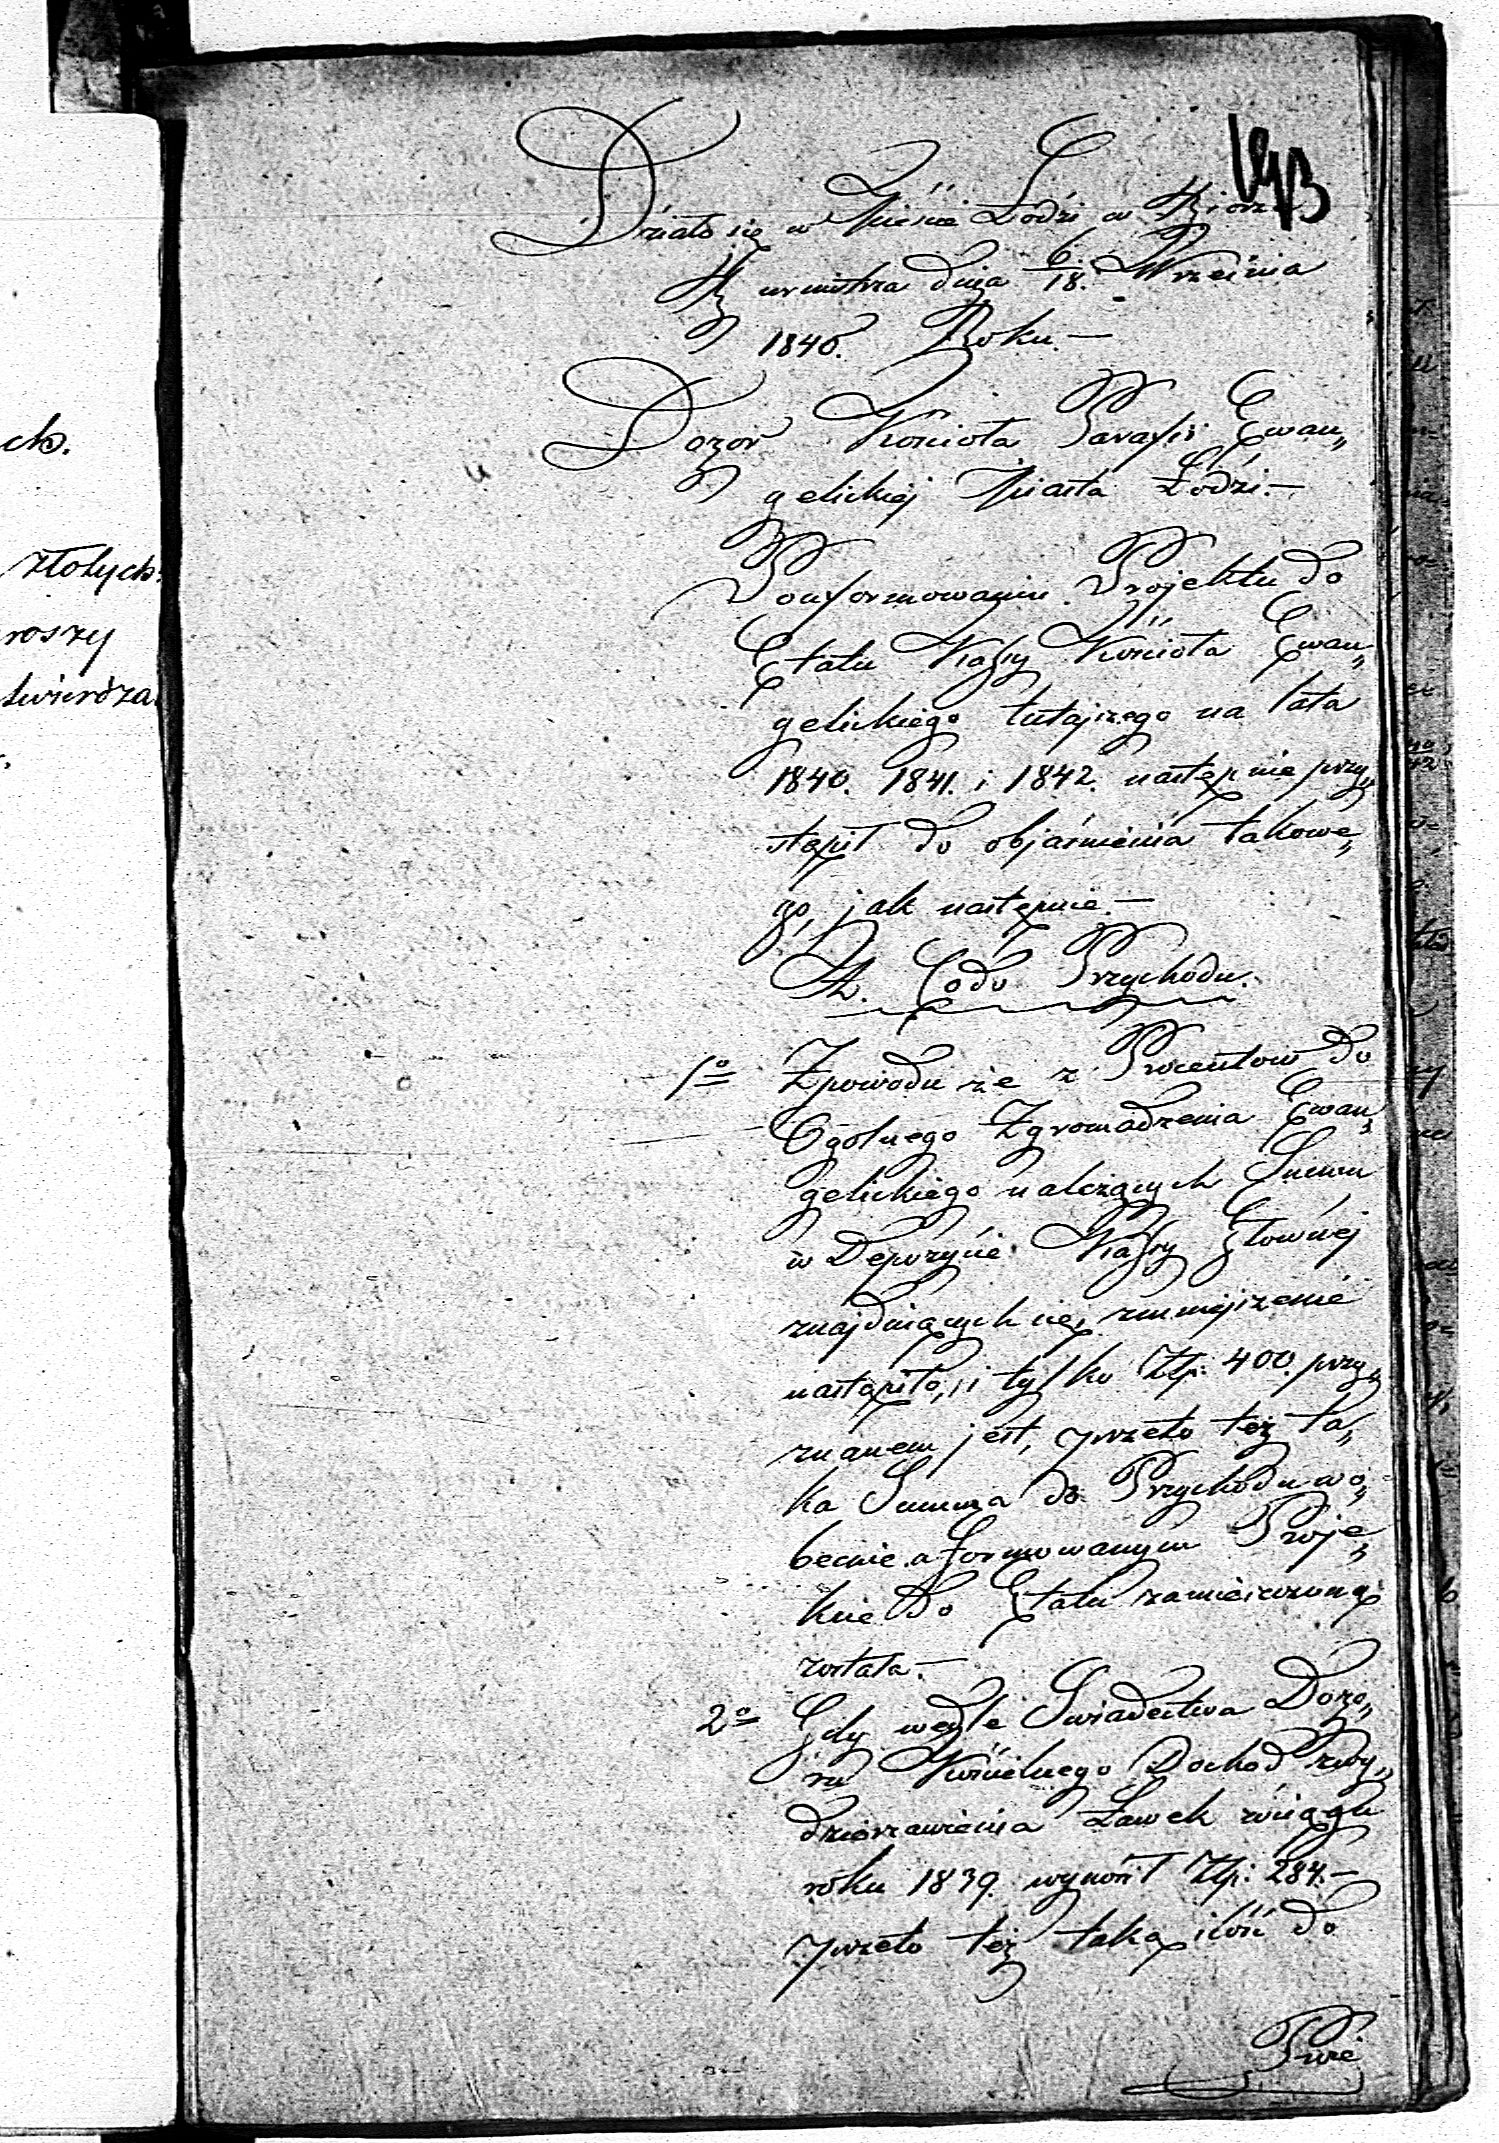 Działo się w Mieście Łodzi w Biórze
Burmistrza dnia 6/18. Września
1840. Roku.—
Dozór Kościoła Parafii Ewan„
gelickiej Miasta Łodzi.—
Pouformowaniu Projektu do
Etatu Kassy Kościoła Ewan„
gelickiego tutajszego na lata
1840. 1841. i 1842. następnie przy„
stąpił do objaśnienia takowe„
go, jak następnie.—
A. Codo Przychodu.
1o Zpowodu że z Procentów do
Ogólnego Zgromadzenia Ewan„
gelickiego należących Summ
w Depozycie Kassy Głównej
znajdujących się, zmniejszenie
nastąpiło, i tylko Złp: 400. przy„
znanem jest, przeto też ta„
ka Summa do Przychodu w o„
becnie uformowanym Proje„
kcie do Etatu zamieszczoną
została.—
2o Gdy wedle Świadectwa Dozo„
ru Kościelnego Dochód zwy„
dzierzawienia Ławek wciągu
roku 1839. wynosił Złp: 284.—
przeto też taką ilość do
ch.
złotych
roszy
twierdza